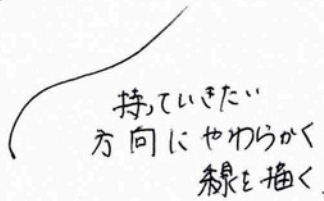 持っていきたい
方向にやわらかく
線を描く